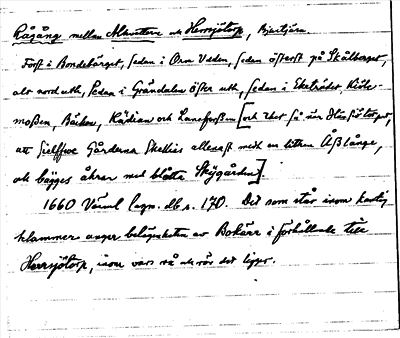 Rågång mellan och Herrsjötorp, Bjurtjärn.
Först i Bondebärget, sedan i Orm Uden, sedan österst på Skålberget,
alt nord uth, sedan i Grändalen öfter uth, sedan i Eketrädet,
moßen, Bäcken, Kådian och Lancforßen [och
att sielffwe Gårderna Skellies allenast medh en lithen Åßlånge,
och bägges åkrar med blotte Skygården].
1660 Värml. lagm. db s. 170. Det som står inom hak-
klammer anger belägenheten av Bokärr i förhållande till
Herrsjötorp, inom vars rå och rör det ligger.